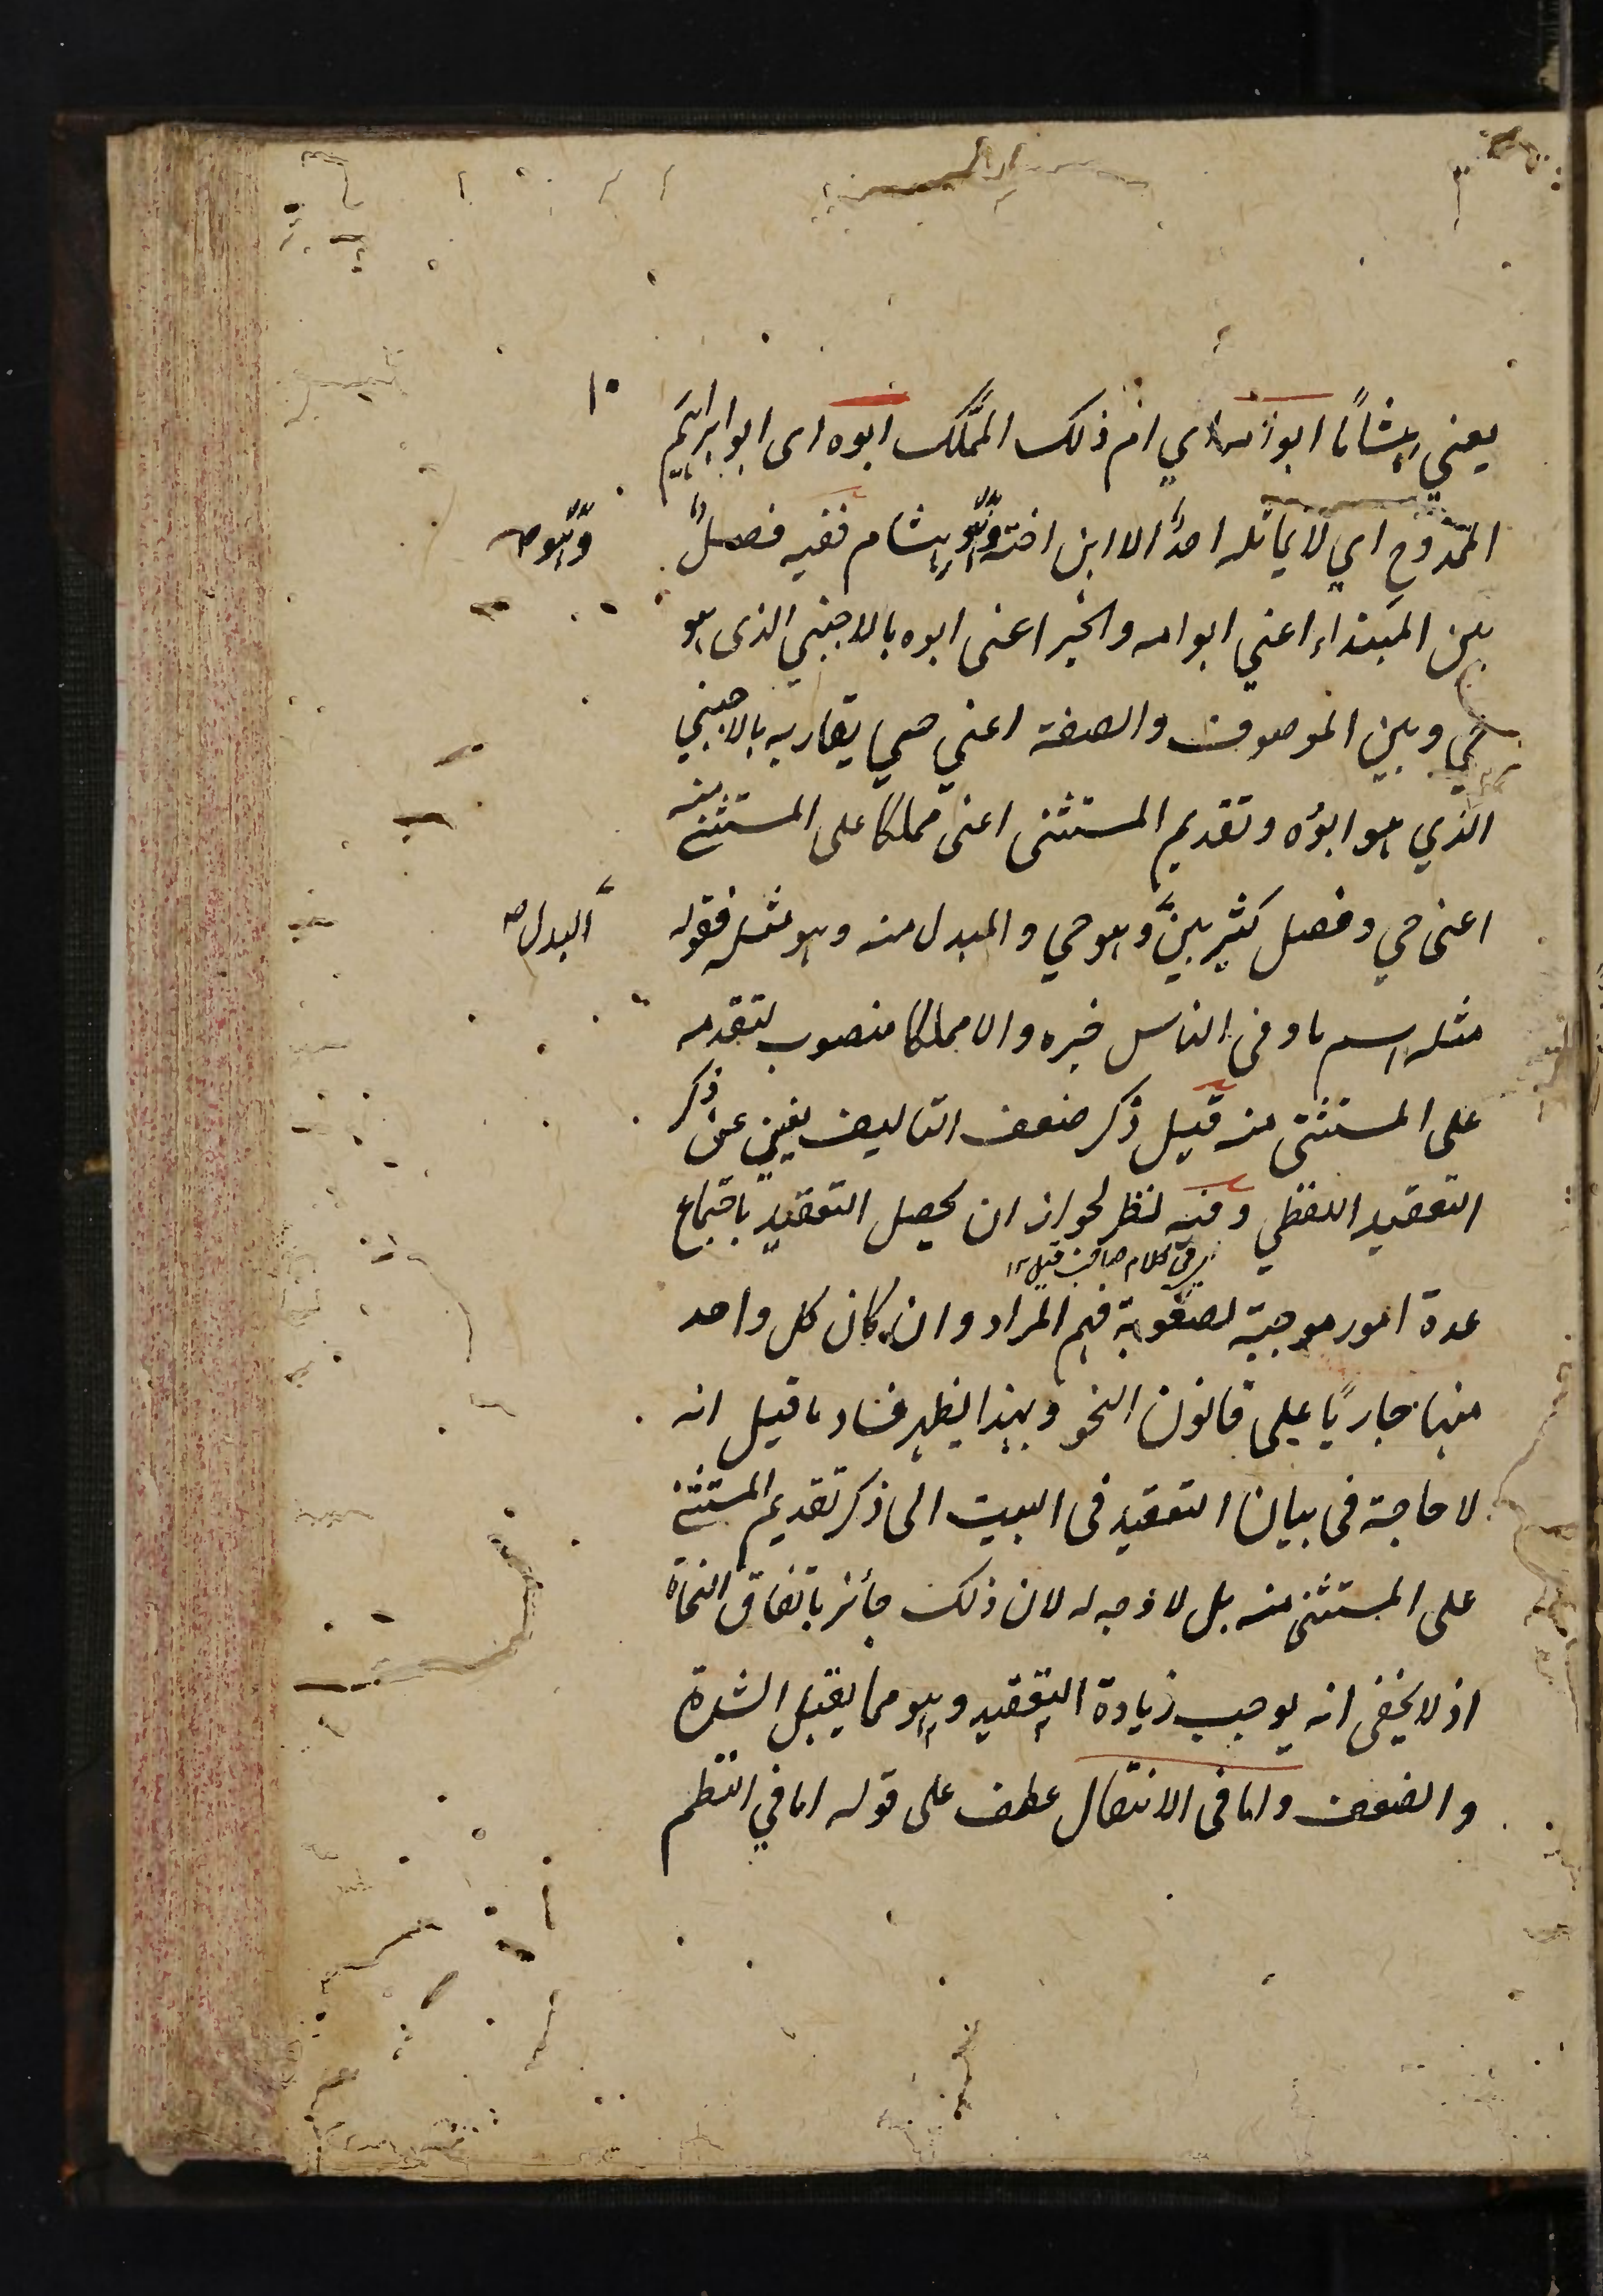 ١٠
يعني هشاما ابو امه اي ام ذلك المملك ابوه اى ابو ابراهيم
الممدوح اي لا يماثله احد الا ابن اخته وهو هشام ففيه فصل
وهو صح
بين المبتداء اعني ابو امه والخبر اعنى ابوه بالاجنبي الذى هو
حي وبين الموصوف والصفة اعني حي يقاربه بالاجنبي
الذي هو ابوه وتقديم المستثنى اعنى مملكا على المستثنى منه
اعنى حي وفصل كثير بين وهو حي والمبدل منه وهو مثله فقوله
البدل صح
مثله اسم ما وفى الناس خبره والا مملكا منصوب لتقدمه
على المستثنى منه قيل ذكر ضعف التاليف يغني عن ذكر
التعقيد اللفظي وفيه نظر لجواز ان يحصل التعقيد باجتماع
اي في كلام صاحب قيل ١٢
عدة امور موجبة لصعوبة فهم المراد وان كان كل واحد
منها جاريًا على قانون النحو وبهذا يظهر فساد ما قيل انه
لا حاجة فى بيان التعقيد فى البيت الى ذكر تقديم المستثنى
على المستثنى منه بل لا وجه له لان ذلك جائز باتفاق النحاة
اذ لا يخفى انه يوجب زيادة التعقيد وهو مما يقبل الشدة
والضعف واما فى الانتقال عطف على قوله اما في النظم